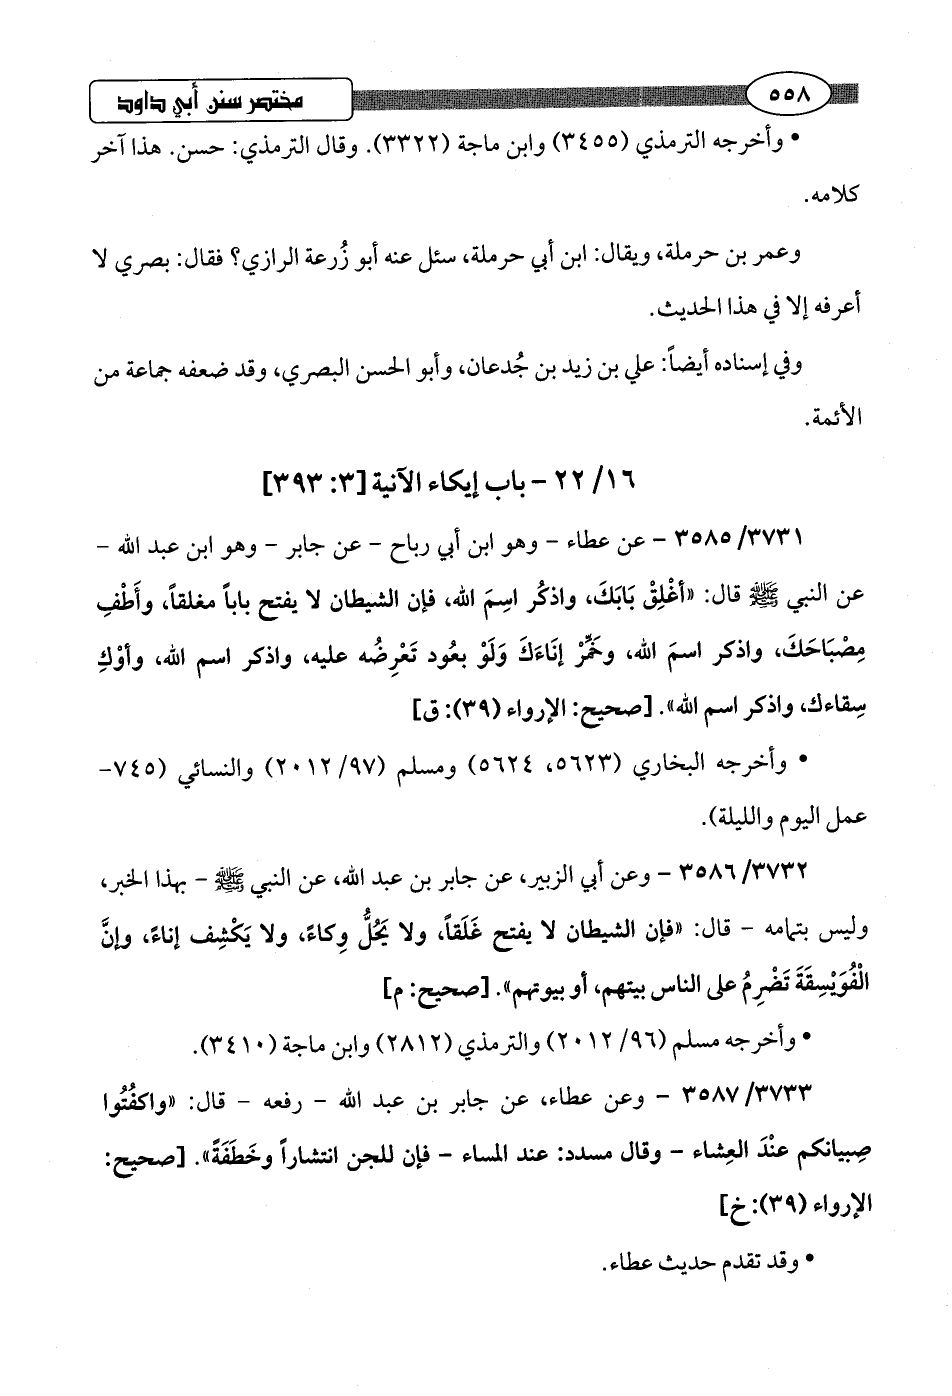 ٥٥٨
مختصر سنن أبي داود
• وأخرجه الترمذي (٣٤٥٥) وابن ماجة (٣٣٢٢). وقال الترمذي: حسن. هذا آخر
كلامه.
وعمر بن حرملة، ويقال: ابن أبي حرملة، سئل عنه أبو زُرعة الرازي؟ فقال: بصري لا
أعرفه إلا في هذا الحديث.
وفي إسناده أيضاً: علي بن زيد بن جُدعان، وأبو الحسن البصري، وقد ضعفه جماعة من
الأئمة.
١٦/ ٢٢ - باب إيكاء الآنية [٣: ٣٩٣]
٣٥٨٥/٣٧٣١ - عن عطاء - وهو ابن أبي رباح - عن جابر - وهو ابن عبد الله -
عن النبي ﷺ قال: «أغْلِقْ بَابَكَ، واذكُر اسِمَ الله، فإن الشيطان لا يفتح باباً مغلقاً، وأَطْفِ
مِصْبَاحَكَ، واذكر اسمَ الله، وخَمِّرْ إنَاءَكَ وَلَوْ بعُود تَعْرِضُه عليه، واذكر اسم الله، وأوْكِ
سِقاءك، واذكر اسم الله». [صحيح: الإرواء (٣٩): ق]
• وأخرجه البخاري (٥٦٢٣، ٥٦٢٤) ومسلم (٢٠١٢/٩٧) والنسائي (٧٤٥-
عمل اليوم والليلة).
٣٥٨٦/٣٧٣٢ - وعن أبي الزبير، عن جابر بن عبد الله، عن النبي ﷺ - بهذا الخبر،
وليس بتمامه - قال: «فإن الشيطان لا يفتح غَلَقاً، ولا يَحُلُّ وِكاءً، ولا يَكْشِف إناءً، وإنَّ
الْفُوَيْسِقَةَ تَضْرِمُ على الناس بيتهم، أو بيوتهم». [صحيح: م]
• وأخرجه مسلم (٢٠١٢/٩٦) والترمذي (٢٨١٢) وابن ماجة (٣٤١٠).
٣٥٨٧/٣٧٣٣ - وعن عطاء، عن جابر بن عبد الله - رفعه - قال: «واكفُتُوا
صِبيانكم عنْدَ العِشاء - وقال مسدد: عند المساء - فإن للجن انتشاراً وخَطَفَةً». [صحيح:
الإرواء (٣٩): خ]
• وقد تقدم حديث عطاء.